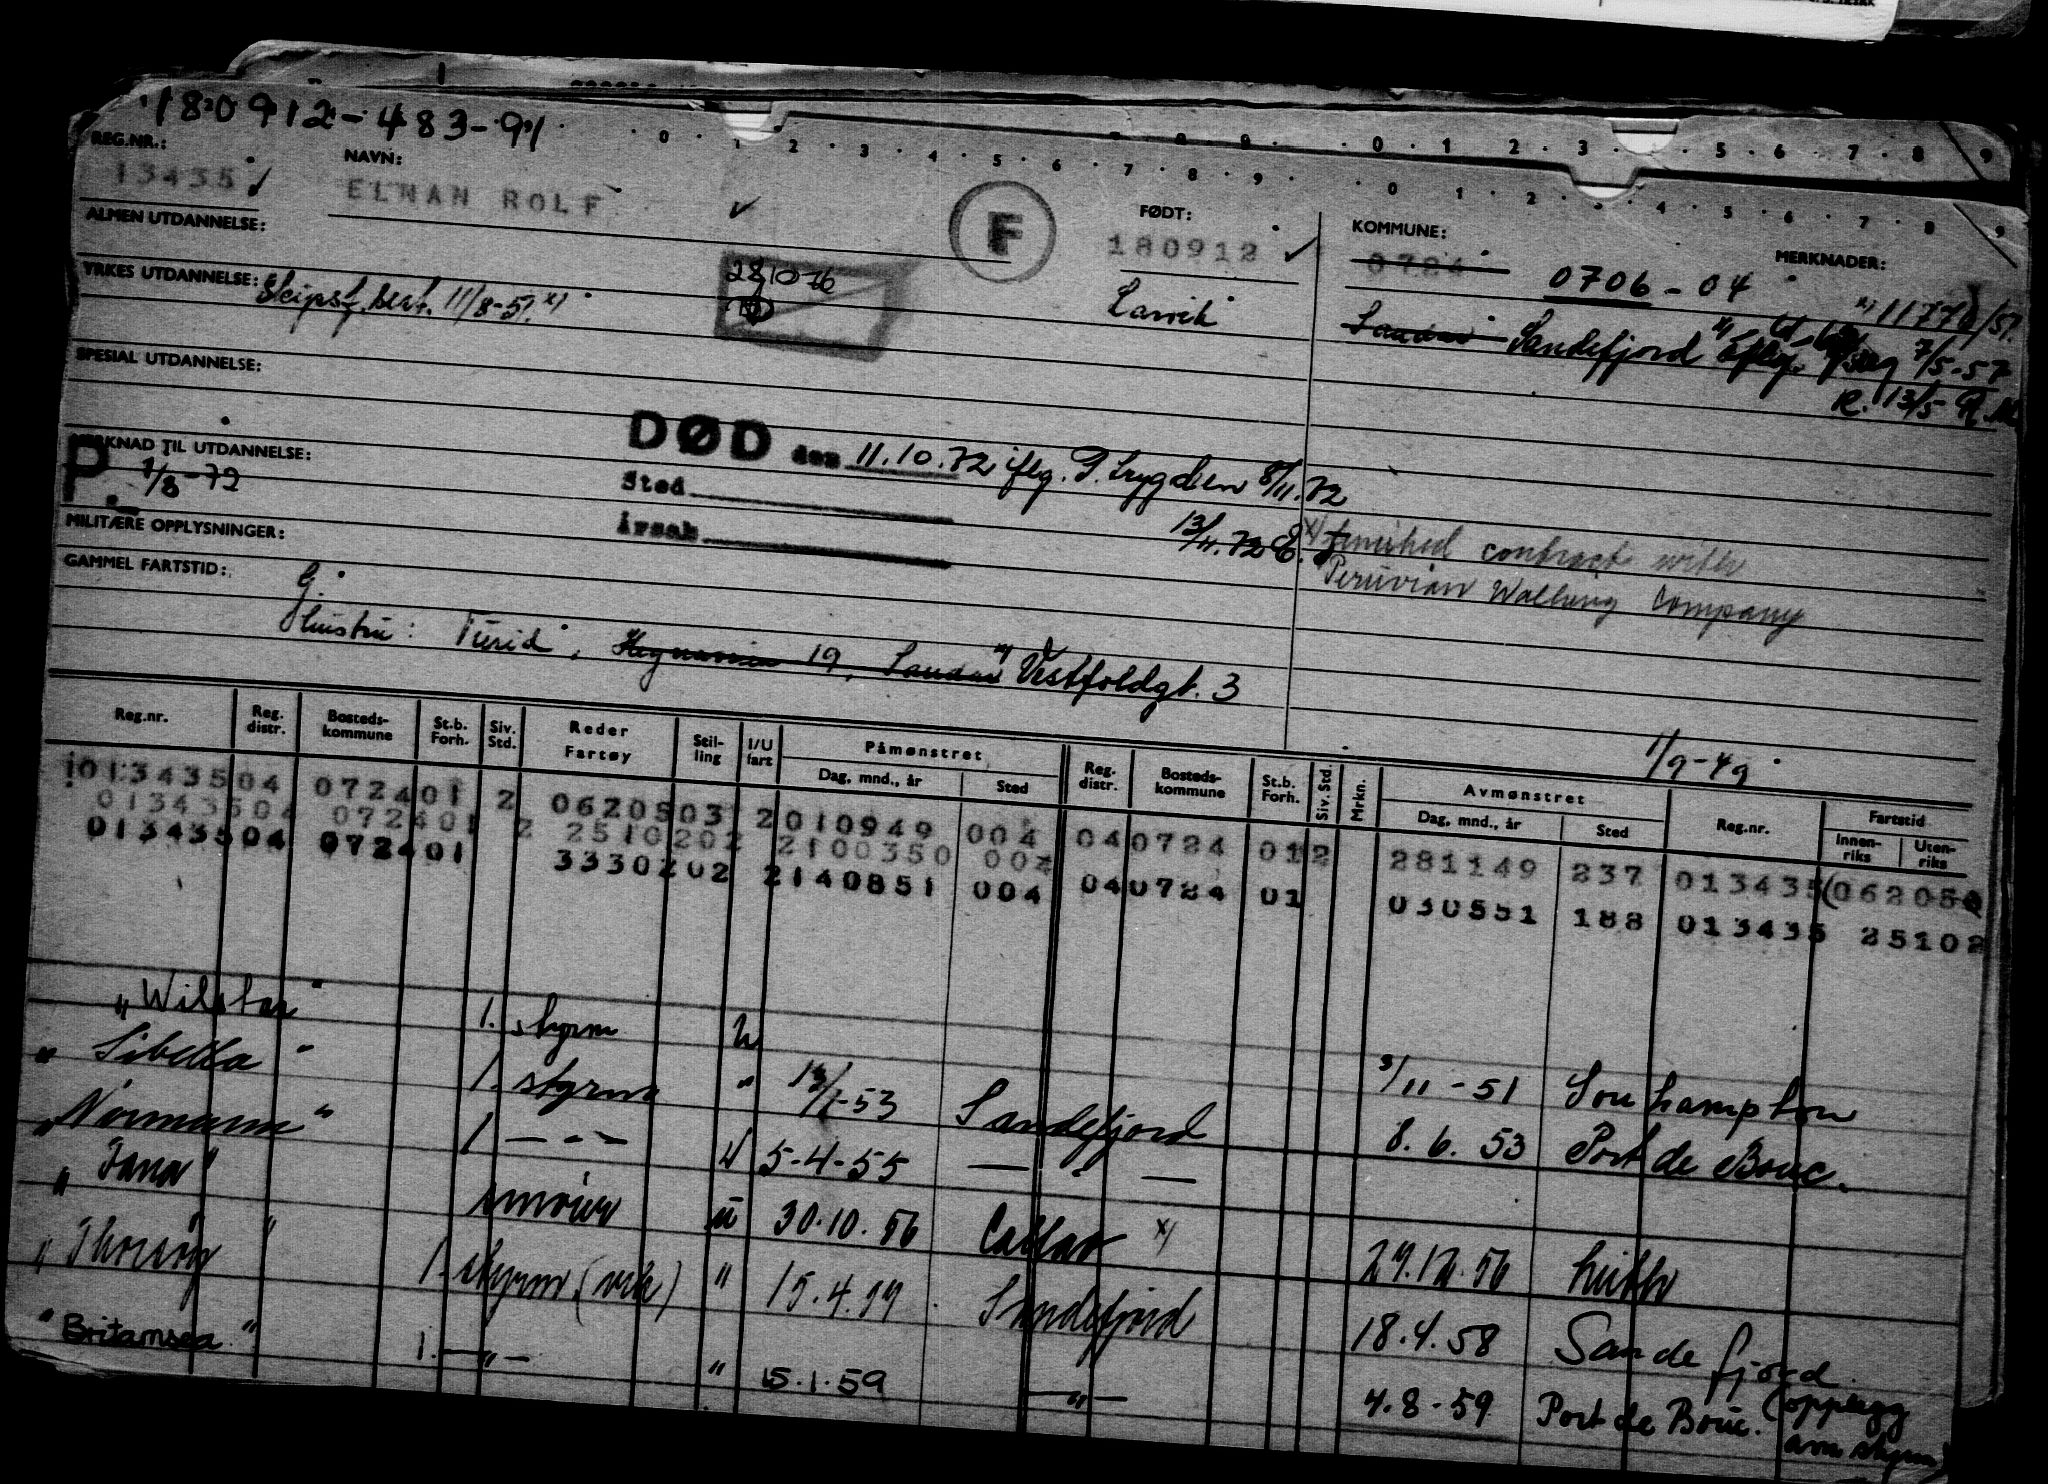 180912-483-91
0 . 1 . 2 . 3 . 4 . 5 . 6 . 7 . 8 . 9 . 0 . 1 . 2 . 3 . 4 . 5 . 6 . 7 . 8 . 9
REG.NR.: NAVN: FØDT: KOMMUNE: MERKNADER:
13435 ELNAN ROLF F 180912 0724 0706-04
ALMEN UTDANNELSE:
YRKES UTDANNELSE: Skipsf. sert. 11/8-51. x) 28/10 76 Larvik Sandar Sandefjord 7/5-57
R. 13/5
SPESIAL UTDANNELSE:
MERKNAD TIL UTDANNELSE:
P. 1/8-72
DØD den 11.10.72 iflg. P. Trygden 8/11.72
Sted
13/11.72 E.
Årsak
x) finished contract with
Peruvian Walling Company
MILITÆRE OPPLYSNINGER:
GAMMEL FARTSTID:
G.
Hustru: Turid, 19, Sandar Vestfoldgt. 3
1/9-49
Reg.nr. Reg. distr. Bosteds-kommune St.b. Forh. Siv. Std. Reder Fartøy Stil-ling I/U fart Påmønstret Dag, mnd., år Sted Reg. distr. Bosteds-kommune St.b. Forh. Siv. Std. Mrkn. Avmønstret Dag, mnd., år Sted Reg.nr. Fartstid Innen-riks Uten-riks
01343504 072401 2 0620503 2 010949 004 04 0724 01 2 281149 237 013435 (062050
01343504 072401 2 2510202 2 100350 004 04 0724 01 030551 188 013435 25102
01343504 072401 3330202 2 140851 004
"Wilstar" 1. styrm u 3/11-51 Southampton
"Sibella" 1. styrm " -53 Sandefjord 8.6.53 Port de Bouc.
"Normanna" 1 — " — U 5-4-55 — " —
"Jana" smører u 30.10.56 Callao x) 29.12.56
"Thorsøy" 1. styrm (vik) " 15.4.57 Sandefjord 18.4.58 Sandefjord
"Britamsea" 1. — " — " 15.1.59 — " — 4.8-59 Port de Bouc. (opplegg